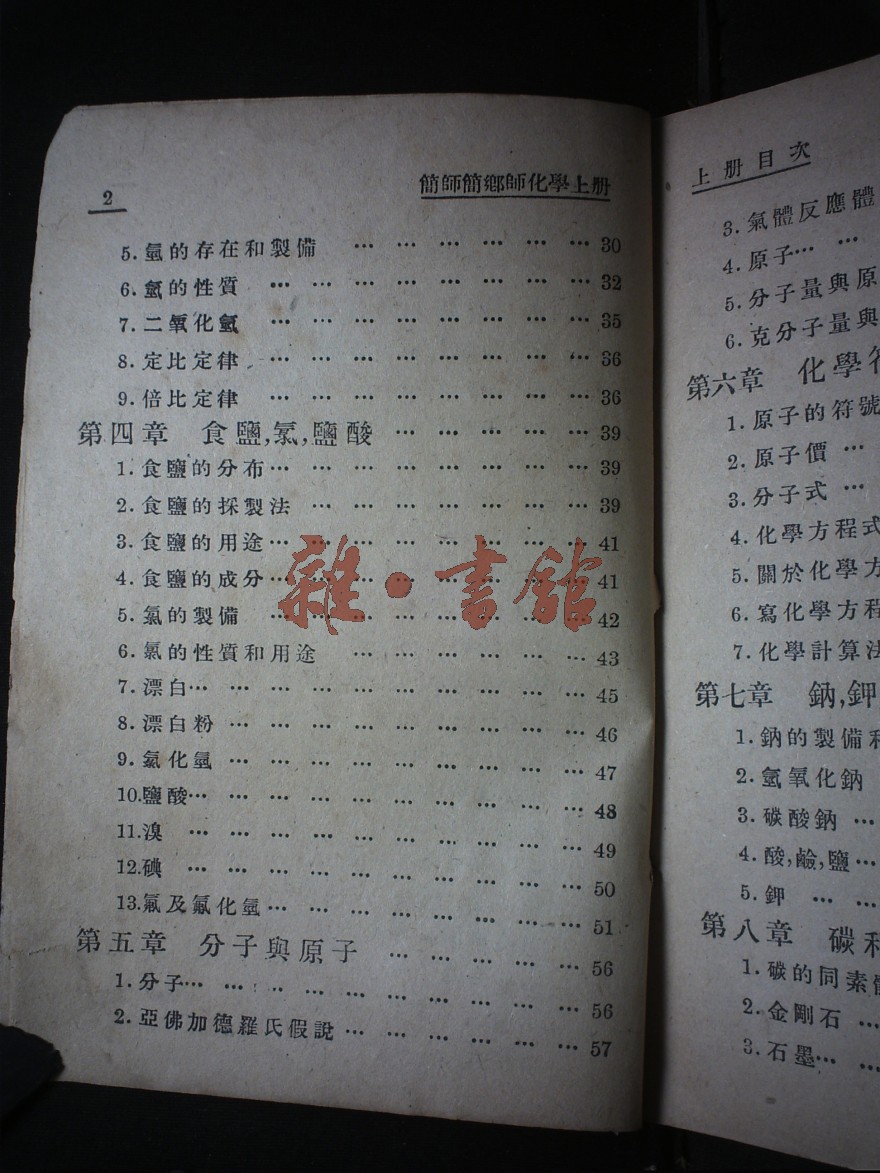 2 簡師簡鄉師化學上册
5. 氫的存在和製備 … … … … … … 30
6. 氫的性質 … … … … … … … … 32
7. 二氧化氫 … … … … … … … … 35
8. 定比定律 … … … … … … … … 36
9. 倍比定律 … … … … … … … … 36
第四章 食鹽,氯,鹽酸 … … … … … 39
1. 食鹽的分布 … … … … … … … … 39
2. 食鹽的採製法 … … … … … … … 39
3. 食鹽的用途 … … … … … … … … 41
4. 食鹽的成分 … … … … … … … … 41
5. 氯的製備 … … … … … … … … 42
6. 氯的性質和用途 … … … … … … 43
7. 漂白 … … … … … … … … … … 45
8. 漂白粉 … … … … … … … … … 46
9. 氯化氫 … … … … … … … … … 47
10. 鹽酸 … … … … … … … … … … 48
11. 溴 … … … … … … … … … … 49
12. 碘 … … … … … … … … … … 50
13. 氟及氟化氫 … … … … … … … … 51
第五章 分子與原子 … … … … … 56
1. 分子 … … … … … … … … … … 56
2. 亞佛加德羅氏假說 … … … … … … 57
雜·書館
上册目次
3. 氣體反應體
4. 原子 … …
5. 分子量與原
6. 克分子量與
第六章 化學符
1. 原子的符號
2. 原子價 …
3. 分子式 …
4. 化學方程式
5. 關於化學方
6. 寫化學方程
7. 化學計算法
第七章 鈉,鉀
1. 鈉的製備和
2. 氫氧化鈉
3. 碳酸鈉 …
4. 酸,鹼,鹽 …
5. 鉀 … …
第八章 碳和
1. 碳的同素體
2. 金剛石 …
3. 石墨 … …